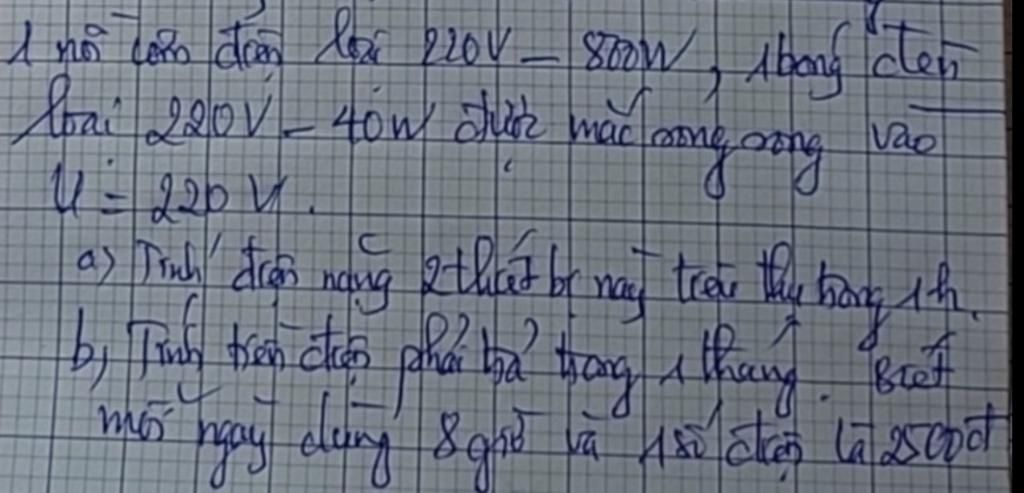 1 nồi cơm điện loại 220V - 800W, 1 bóng đèn
loại 220V - 40W được mắc song song vào
U = 220V.
a) Tính điện năng 2 thiết bị này tiêu thụ trong 1h.
b, Tính tiền điện phải trả trong 1 tháng. Biết
mỗi ngày dùng 8 giờ và 1 số điện là 2500đ